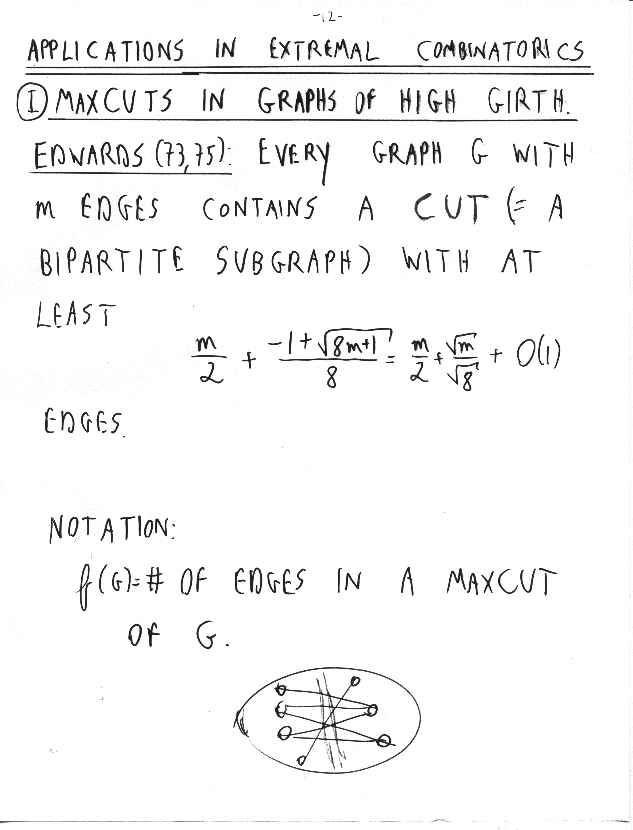 -12-
APPLICATIONS IN EXTREMAL COMBINATORICS
I MAXCUTS IN GRAPHS OF HIGH GIRTH.
EDWARDS (73,75): EVERY GRAPH G WITH
m EDGES CONTAINS A CUT (= A
BIPARTITE SUBGRAPH) WITH AT
LEAST
m/2 + (-1+√(8m+1))/8 = m/2 + √m/√8 + O(1)
EDGES.
NOTATION:
f(G)=# OF EDGES IN A MAXCUT
OF G.